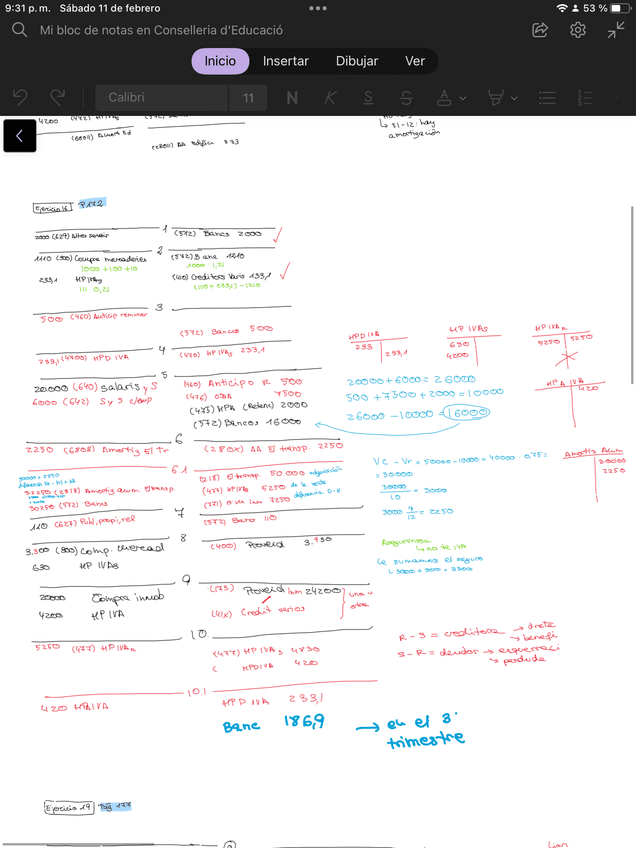 9:31 p. m. Sábado 11 de febrero
53 %
Mi bloc de notas en Conselleria d'Educació
Inicio Insertar Dibujar Ver
Calibri 11 N K S S A
4200 (472) HP IVAs
31-12: hay
amortización
(2811) AA Edificis 333
Ejercicio 16 P.172
1
2000 (629) Altres serveis (572) Bancs 2000
2
1110 (600) Compra mercaderies (572) Banc 1210
1000+100+10 1000 · 1,21
233,1 HP IVAs (410) Creditors Varis 133,1
111 · 0,21 (1110 + 233,1) - 1210
3
500 (460) Anticip remuner
(572) Bancos 500
4
233,1 (4700) HPD IVA (472) HP IVAs 233,1
5
20.000 (640) salaris y S (460) Anticipo R 500
6000 (642) Sys c/emp (476) OSSA 7500
(475) HPA (Retenc) 2000
(572) Bancos 16000
6
2250 (6808) Amortiz El Tr (280X) AA El transp. 2250
6.1
32250 (2818) Amortiz acum El transp. (218) El transp. 50.000 adquisición
(477) HP IVAR 5250 de la venta
30250 (572) Banc (771) 7250 diferencia D-H
7
110 (627) Publ, propi, rel (572) Banco 110
8
3.300 (600) Comp. mercad (400) Proveid 3.930
630 HP IVAs
9
20000 Compra immob (173) Proveid Inm 24200
4200 HP IVA (41X) Credit varios
una u
otra
10
5250 (477) HP IVAR (477) HP IVAs 4830
HPD IVA 420
10.1
420 HP IVA HPD IVA 233,1
Banc 186,9 → en el 3º
trimestre
HPD IVA
233 233,1
HP IVAs
630
4200
HP IVAR
5250 5250
HPA IVA
420
20000+6000 = 26000
500 + 7500 + 2000 = 10000
26000 - 10000 = 16000
VC - Vr = 50000-10000 = 40000 · 0,75 =
= 30000
30000
10
= 3000
3000 · 9/12 = 2250
Amortiz Acum
30000
2250
Aseguranza
↳ no te IVA
Le sumamos el seguro
R - S = creditora → dreta
↘ benefi
S - R = deudor → esquerra
↘ perdida
Ejercicio 19 Pág 177